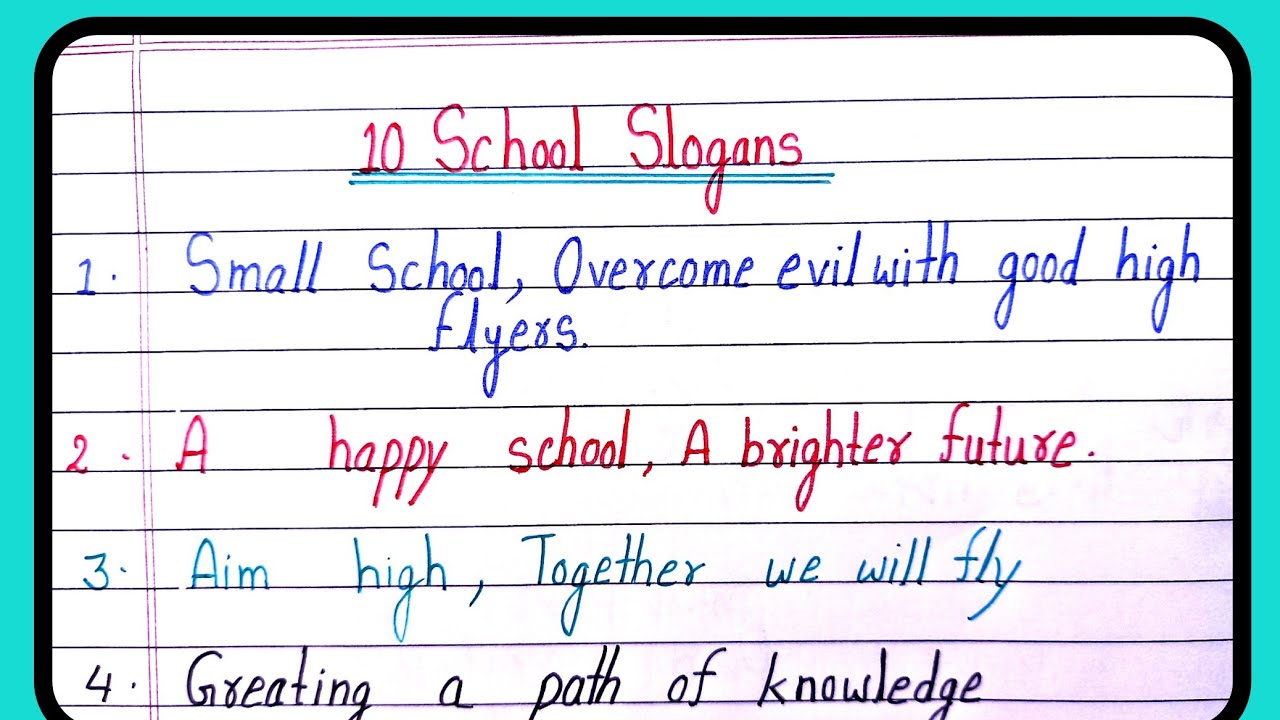 10 School Slogans
1. Small School, Overcome evil with good high
flyers.
2. A happy school, A brighter future.
3. Aim high, Together we will fly
4. Greating a path of knowledge